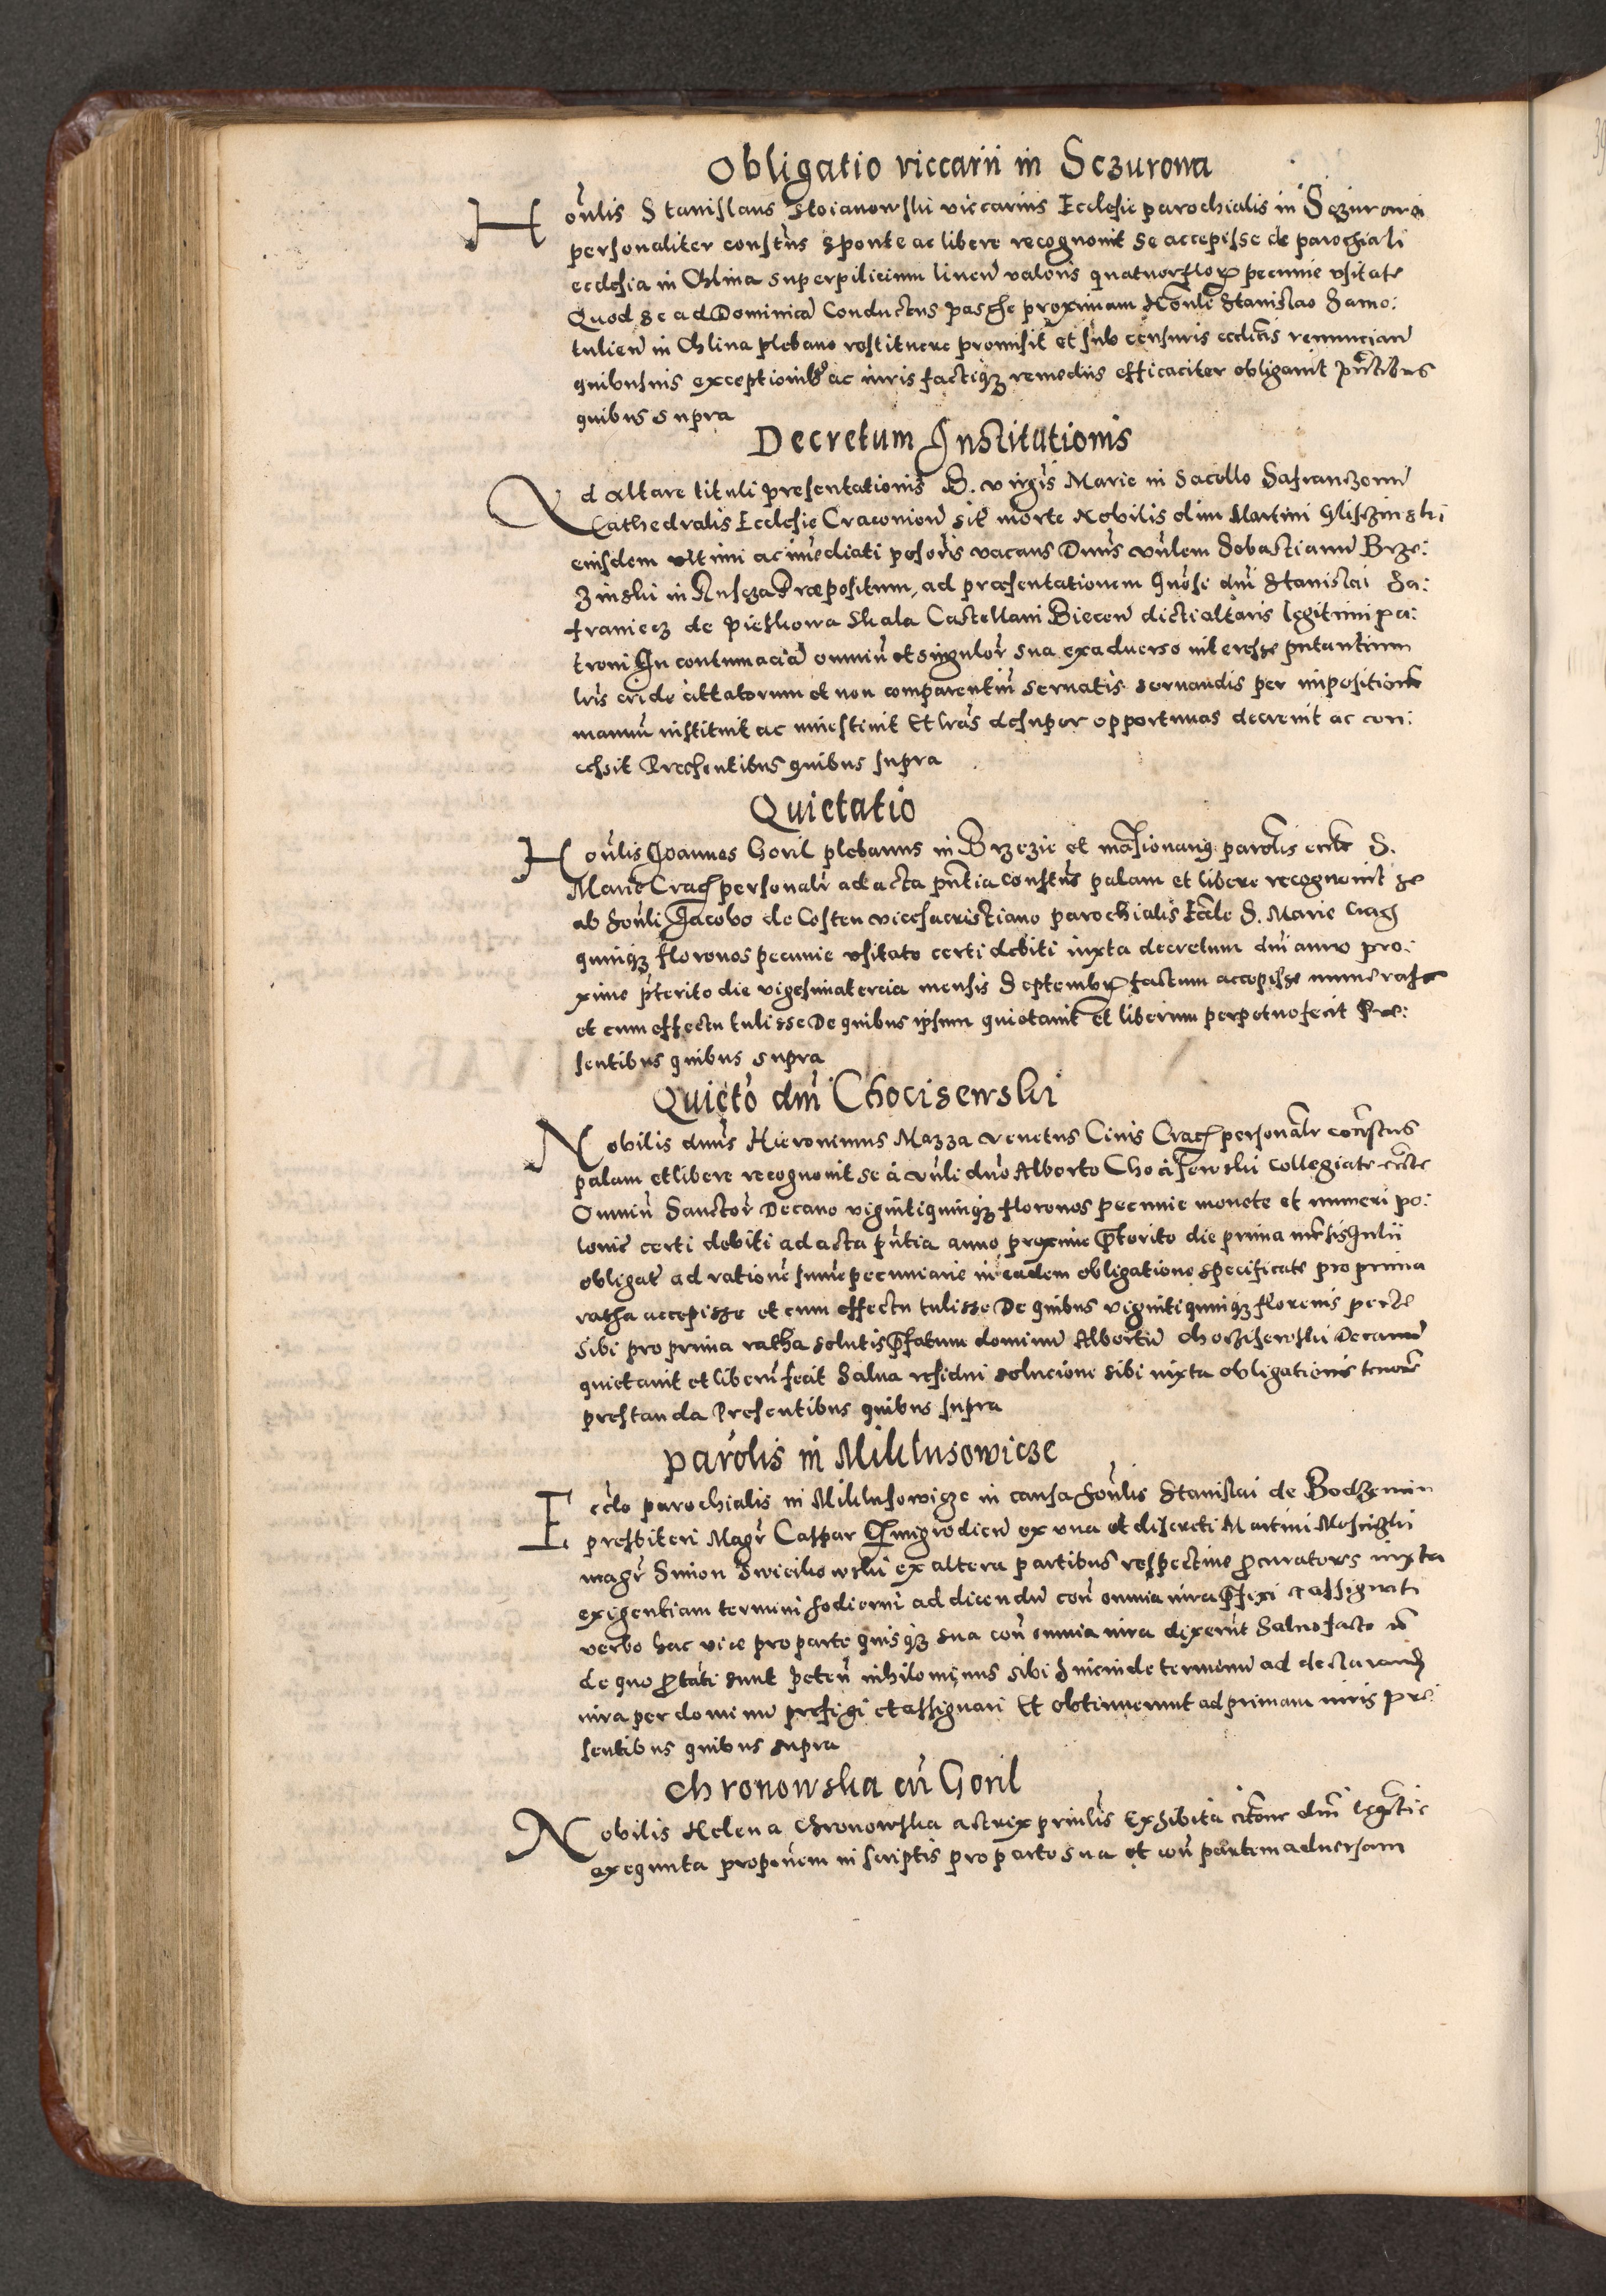 Obligatio viccarii in Sczurowa
Honlis Stanislaus Stoianowski viccarius Ecclesie parochialis in Sczurowa
personaliter constus sponte ac libere recognovit se accepisse de parochiali
ecclesia in Chlina superpilicium lineu valoris quatuor flor pecunie usitate
Quod se ad Dominica Conductus pasche proximam Honli Stanislao Samo:
tulien in Chlina plebano restituere promisit et sub censuris ecclicis renuncian
quibusuis exceptionibus ac iuris factiq remediis efficaciter obligauit pntibus
quibus supra
Decretum Institutionis
Ad altare tituli presentationis B. virgis Marie in Sacello Safranczonu
Cathedralis Ecclesie Cracouien sit morte Nobilis olim Martini Gliszinski
eiusdem ultimi ac imediati posoris vacans Dnus vnlem Sebastianu Brze:
zinski in Præpositum, ad præsentationem Gnosi dni Stanislai Sa:
franiecz de Pieskowa Skala Castellani Biecen dicti altaris legitimi pa:
troni In contumacia omniu et singulor sua ex aduerso interesse putantium
lris eride cittatorum et non comparentiu seruatis seruandis per impositione
manuu instituit ac inuestiuit Et lras desuper opportunas decreuit ac con:
cessit Presentibus quibus supra
Quietatio
Honlis Joannes Goril plebanus in Brzezie et mansionarius parolis eccle S.
Marie Crac personalr ad acta pntia constus palam et libere recognouit se
ab honli Jacobo de Costen vicesacristiano parochialis Eccle S. Marie Crac
quinq florenos pecunie usitate certi debiti iuxta decretum dni anno pro:
ximo pterito die vigesima tercia mensis Septembr factum accepisse numerase
et cum effectu tulisse De quibus ipsum quietauit et liberum perpetuo fecit Præ:
sentibus quibus supra
Quieto dni Chocisewski
Nobilis dnus Hieronimus Mazza venetus Ciuis Crac personalr constus
palam et libere recognouit se a vnli dno Alberto Chocisewski Collegiate eccle
Omniu Sanctor Decano viginti quinq florenos pecunie monete et numeri po:
lonic certi debiti ad acta pntia anno proxime pterito die prima mensis Julii
obligat ad ratione sume pecuniarie in eadem obligatione specificate pro prima
ratha accepisse et cum effectu tulisse De quibus viginti quinq florenis
sibi pro prima ratha solutis pfatum dominu Albertu Choczisewski Decanu
quietauit et liberu fecit Salua residui solucione sibi iuxta obligationis tenore
prestanda Presentibus quibus supra
parolis in Miklusowicze
Eccle parochialis in Miklusowicze in causa honlis Stanislai de Bodzenin
presbiteri Magr Caspar Xmigrodien ex una et discreti Martini Moscighi
magr Simon Swiecikowski ex altera partibus respectiue pcurators iuxta
exigentiam termini hodierni ad dicendu con omnia iura pfixi et assignati
verbo hac vice pro parte quisq sua con omnia iura dixerut Saluo facto
de quo ptati sunt peteu nihilominus sibi hincinde terminu ad declarand
iura per dominu prefigi et assignari Et obtinuerunt ad primam iuris pre
sentibus quibus supra
Chronowska cu Goril
Nobilis Helena Chronowska actrix prinlis Exhibita citone dni
executa proponem in scriptis pro parte sua et con partem aduersam